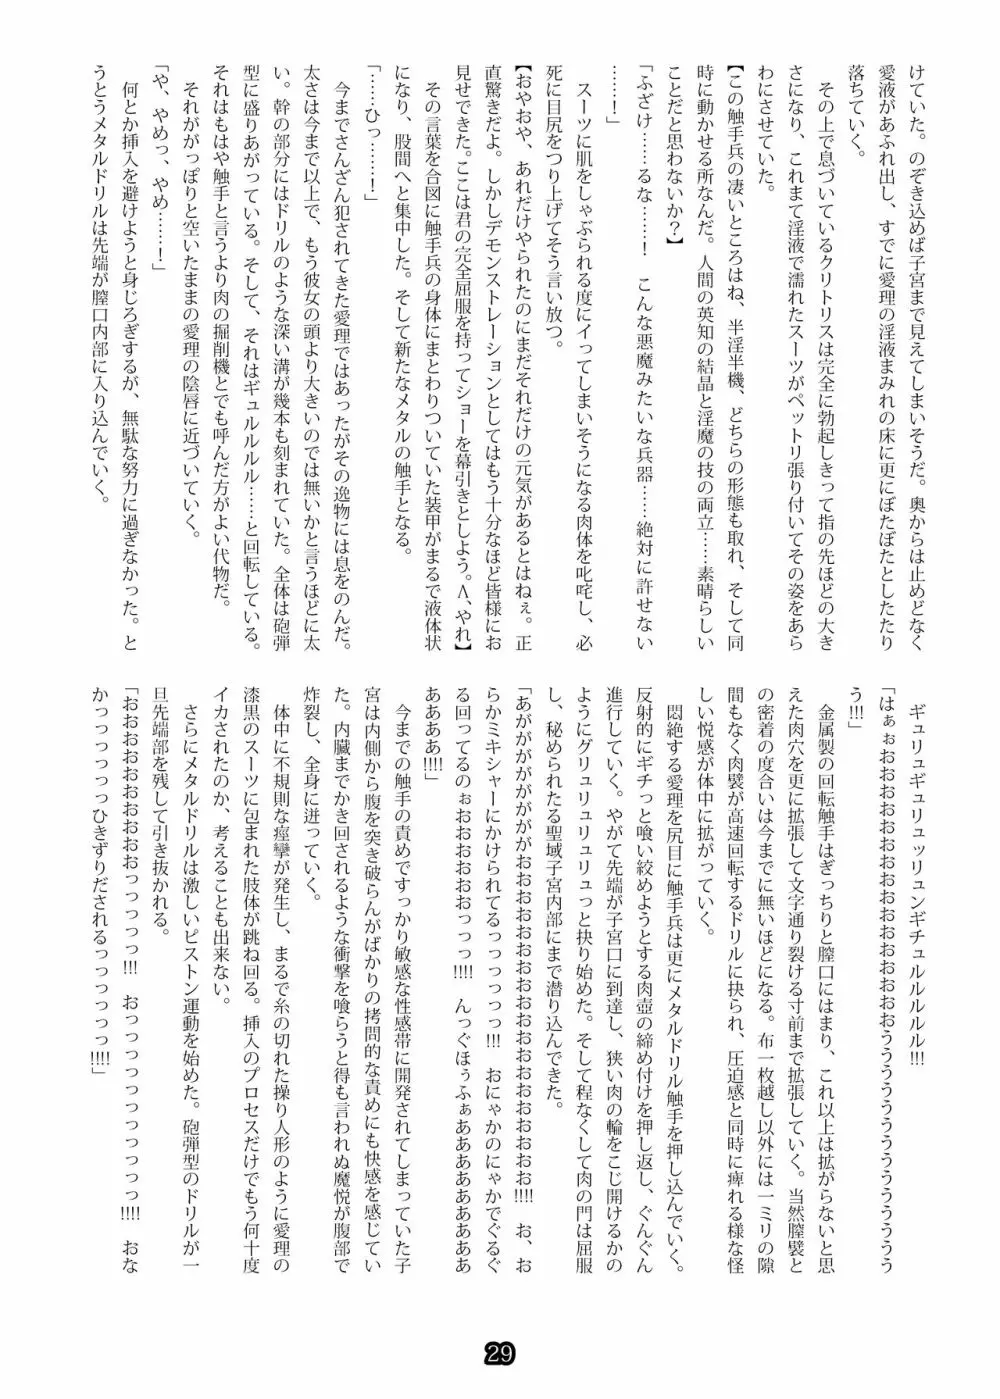 けていた。のぞき込めば子宮まで見えてしまいそうだ。奥からは止めどなく
愛液があふれ出し、すでに愛理の淫液まみれの床に更にぼたぼたとしたたり
落ちていく。
その上で息づいているクリトリスは完全に勃起しきって指の先ほどの大き
さになり、これまて淫液で濡れたスーツがペットリ張り付いてその姿をあら
わにさせていた。
【この触手兵の凄いところはね、半淫半機、どちらの形態も取れ、そして同
時に動かせる所なんだ。人間の英知の結晶と淫魔の技の両立……素晴らしい
ことだと思わないか？】
「ふざけ……るな……！　こんな悪魔みたいな兵器……絶対に許せない
……！」
スーツに肌をしゃぶられる度にイってしまいそうになる肉体を叱咤し、必
死に目尻をつり上げてそう言い放つ。
【おやおや、あれだけやられたのにまだそれだけの元気があるとはねぇ。正
直驚きだよ。しかしデモンストレーションとしてはもう十分なほど皆様にお
見せできた。ここは君の完全屈服を持ってショーを幕引きとしよう。Λ、やれ】
その言葉を合図に触手兵の身体にまとわりついていた装甲がまるで液体状
になり、股間へと集中した。そして新たなメタルの触手となる。
「……ひっ………！」
今までさんざん犯されてきた愛理ではあったがその逸物には息をのんだ。
太さは今まで以上で、もう彼女の頭より大きいのでは無いかと言うほどに太
い。幹の部分にはドリルのような深い溝が幾本も刻まれていた。全体は砲弾
型に盛りあがっている。そして、それはギュルルルル……と回転している。
それはもはや触手と言うより肉の掘削機とでも呼んだ方がよい代物だ。
それががっぽりと空いたままの愛理の陰唇に近づいていく。
「や、やめっ、やめ……！」
何とか挿入を避けようと身じろぎするが、無駄な努力に過ぎなかった。と
うとうメタルドリルは先端が膣口内部に入り込んでいく。
ギュリュギュリュッリュンギチュルルルルル!!!
「はぁぉおおおおおおおおおおおおおおおおおおおうううううううううううううう
う!!!」
金属製の回転触手はぎっちりと膣口にはまり、これ以上は拡がらないと思
えた肉穴を更に拡張して文字通り裂ける寸前まで拡張していく。当然膣襞と
の密着の度合いは今までに無いほどになる。布一枚越し以外には一ミリの隙
間もなく肉襞が高速回転するドリルに抉られ、圧迫感と同時に痺れる様な怪
しい悦感が体中に拡がっていく。
悶絶する愛理を尻目に触手兵は更にメタルドリル触手を押し込んでいく。
反射的にギチっと喰い絞めようとする肉壺の締め付けを押し返し、ぐんぐん
進行していく。やがて先端が子宮口に到達し、狭い肉の輪をこじ開けるかの
ようにグリュリュリュリュっと抉り始めた。そして程なくして肉の門は屈服
し、秘められたる聖域子宮内部にまで潜り込んできた。
「あがががががががががおおおおおおおおおおおおおおおおおお!!!!　お、お
らかミキシャーにかけられてるっっっっっっ!!!　おにゃかのにゃかでぐるぐ
る回ってるのぉおおおおおおっっっ!!!!　んっぐほぅふぁああああああああああ
ああああ!!!!」
今までの触手の責めですっかり敏感な性感帯に開発されてしまっていた子
宮は内側から腹を突き破らんがばかりの拷問的な責めにも快感を感じてい
た。内臓までかき回されるような衝撃を喰らうと得も言われぬ魔悦が腹部で
炸裂し、全身に迸っていく。
体中に不規則な痙攣が発生し、まるで糸の切れた操り人形のように愛理の
漆黒のスーツに包まれた肢体が跳ね回る。挿入のプロセスだけでもう何十度
イカされたのか、考えることも出来ない。
さらにメタルドリルは激しいピストン運動を始めた。砲弾型のドリルが一
旦先端部を残して引き抜かれる。
「おおおおおおおおおおおおおっっっっっっ!!!　おっっっっっっっっっっ!!!!　おな
かっっっっっっひきずりだされるっっっっっっ!!!!」
29